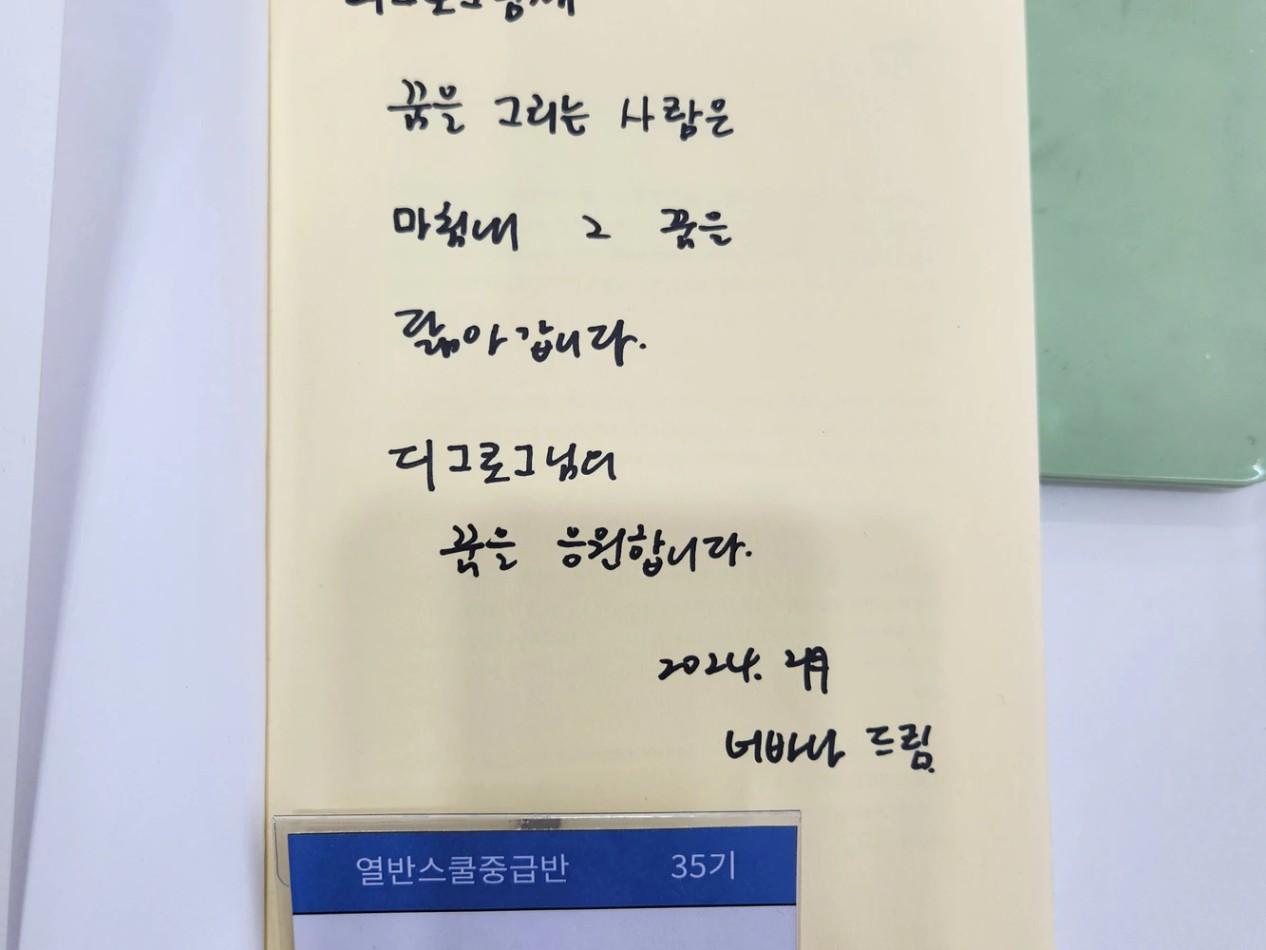 디그로그님께
꿈을 그리는 사람은
마침내 그 꿈을
닮아갑니다.
디그로그님의
꿈을 응원합니다.
2024. 2月
너바나 드림.
열반스쿨중급반 35기